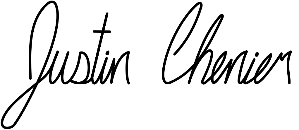 Justin Chenier